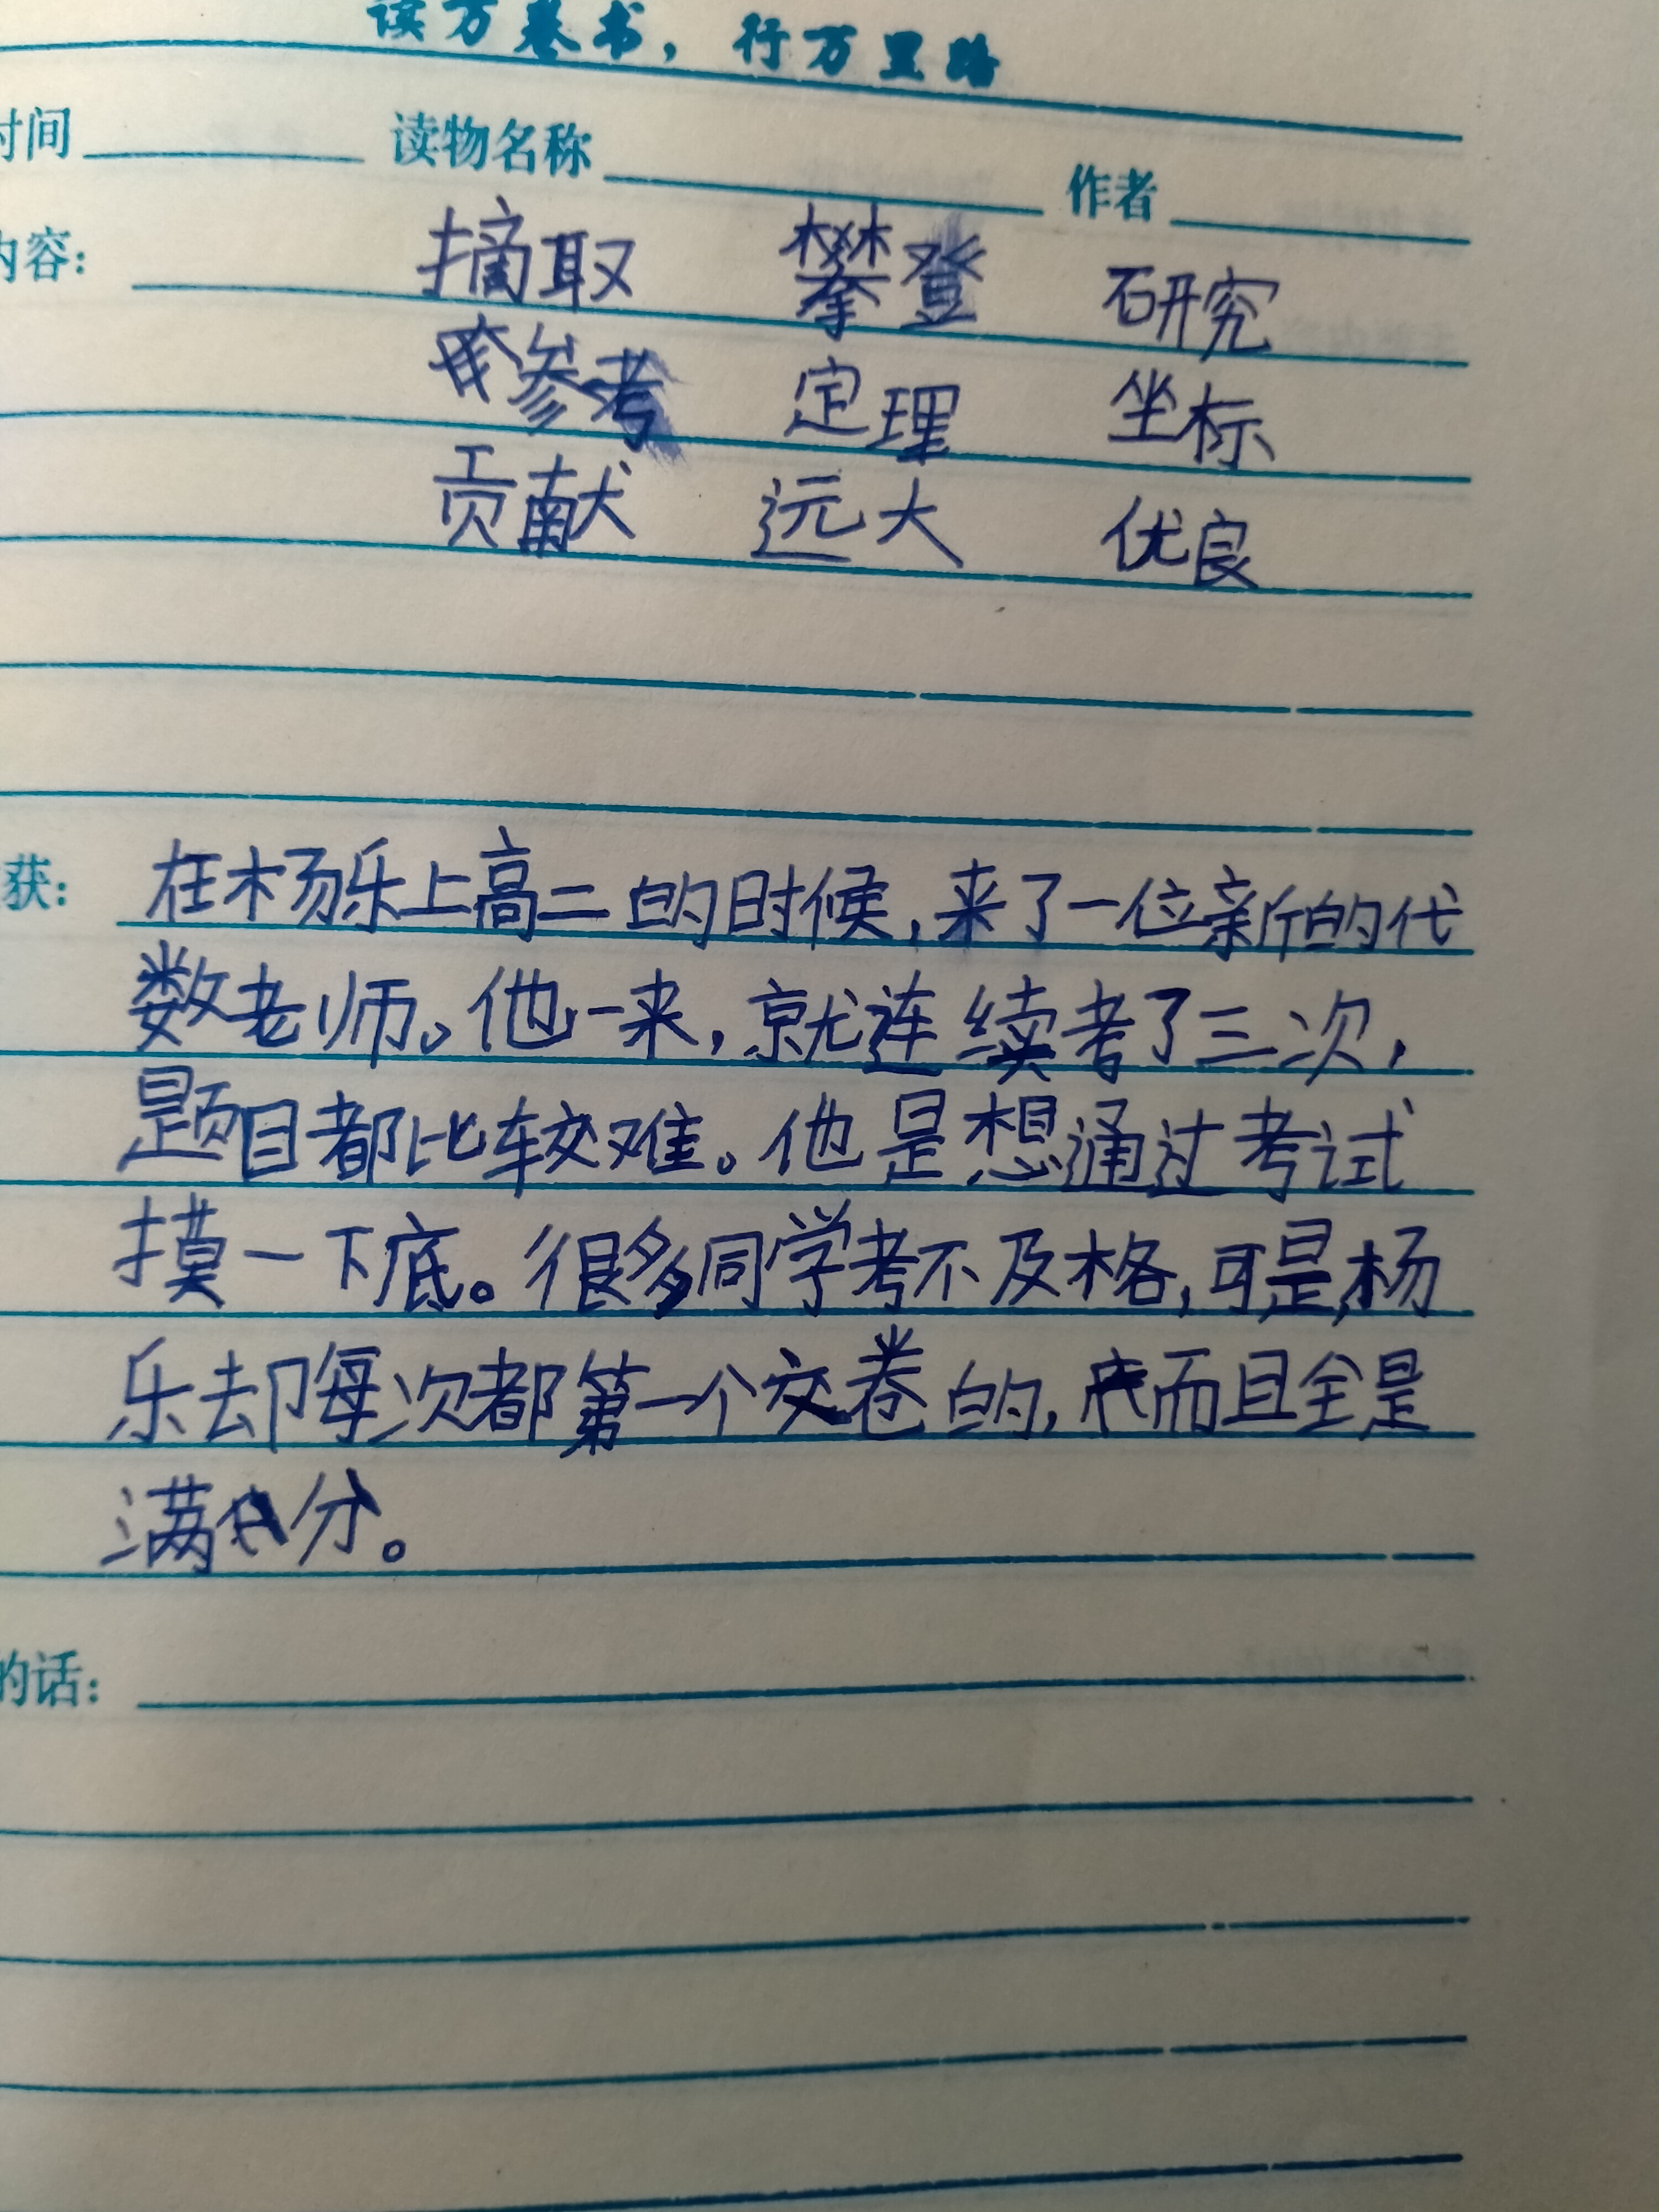 读万卷书，行万里路
时间 读物名称 作者
内容：
摘取 攀登 研究
参考 定理 坐标
贡献 远大 优良
获：在杨乐上高二的时候，来了一位新的代
数老师。他一来，就连续考了三次，
题目都比较难。他是想通过考试
摸一下底。很多同学考不及格，可是，杨
乐却每次都第一个交卷的，而且全是
满分。
的话：